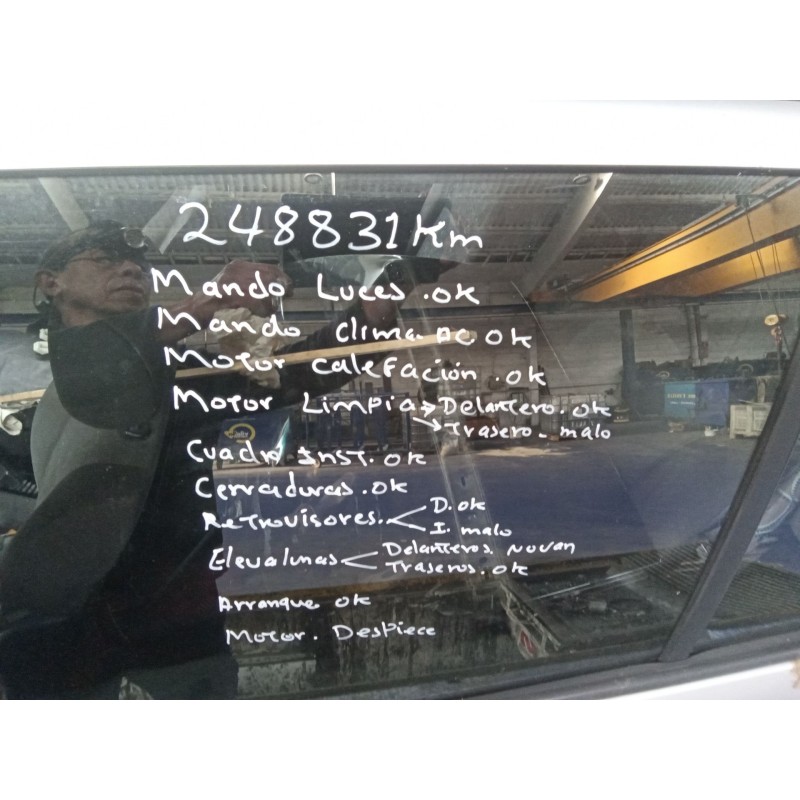 248831 Km
Mando Luces .ok
Mando clima AC OK
Motor calefación .ok
Motor Limpia → Delantero. ok
→ Trasero - malo
Cuadro Inst. ok
Cerraduras .ok
Retrovisores. < D. ok
I. malo
Elevalunas < Delanteros. no van
Traseros. ok
Arranque ok
Motor. Despiece